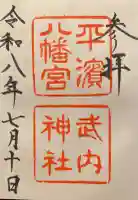 参拝
平濱
八幡宮
武内
神社
令和八年七月十日